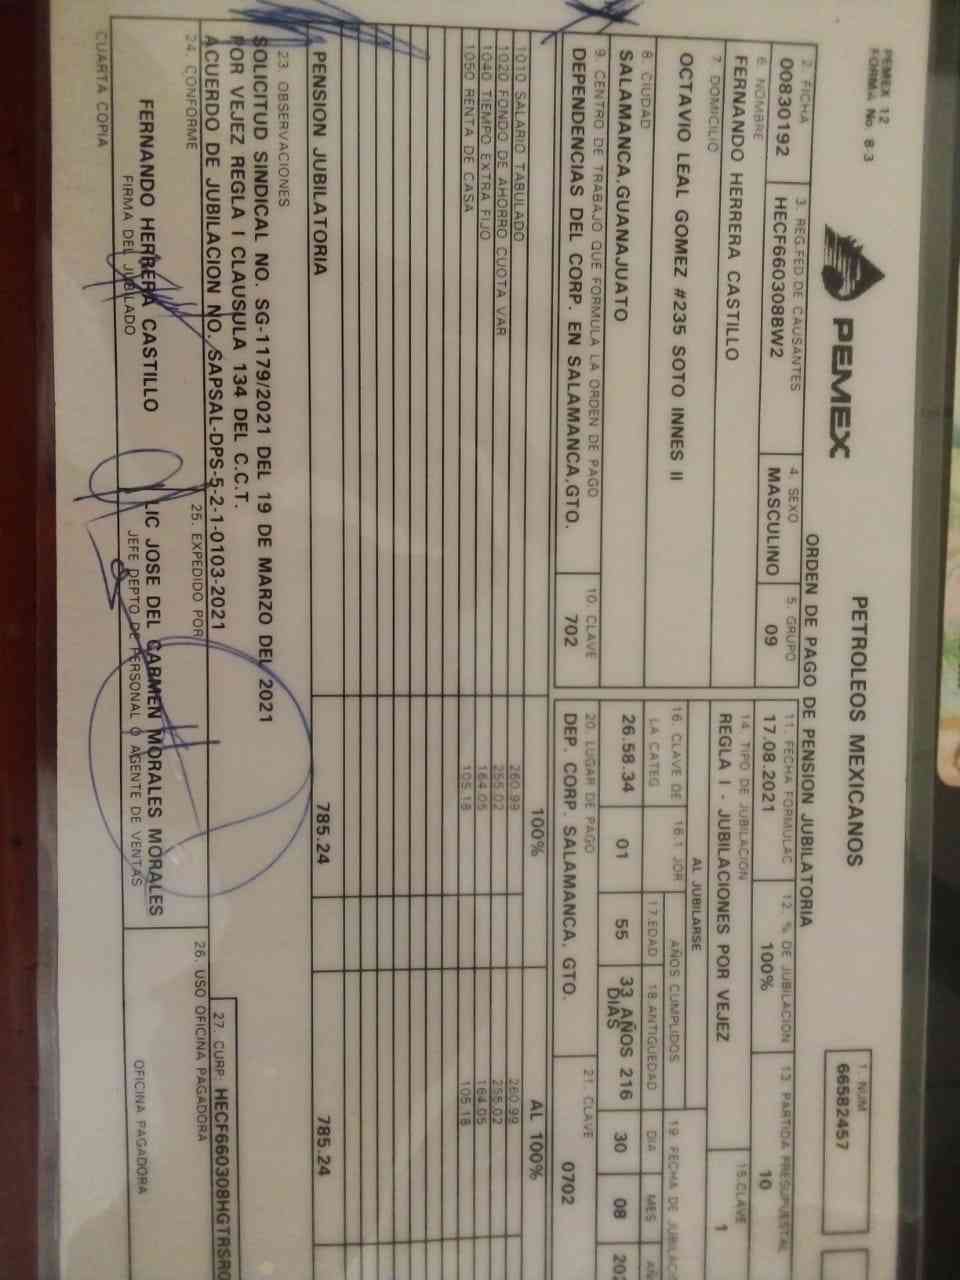 PEMEX 12
FORMA No. 8-3
PEMEX
PETROLEOS MEXICANOS
ORDEN DE PAGO DE PENSION JUBILATORIA
1. NUM
66582457
2. FICHA
00830192
3. REG.FED DE CAUSANTES
HECF660308BW2
4. SEXO
MASCULINO
5. GRUPO
09
11. FECHA FORMULAC
17.08.2021
12. % DE JUBILACION
100%
13. PARTIDA PRESUPUESTAL
10
6. NOMBRE
FERNANDO HERRERA CASTILLO
14. TIPO DE JUBILACION
REGLA I - JUBILACIONES POR VEJEZ
15.CLAVE
1
7. DOMICILIO
OCTAVIO LEAL GOMEZ #235 SOTO INNES II
AL JUBILARSE
16. CLAVE DE
LA CATEG
26.58.34
16.1 JOR
01
AÑOS CUMPLIDOS
17.EDAD
55
18.ANTIGUEDAD
33 AÑOS 216
DIAS
19. FECHA DE JUBILAC
DIA
30
MES
08
8. CIUDAD
SALAMANCA,GUANAJUATO
9. CENTRO DE TRABAJO QUE FORMULA LA ORDEN DE PAGO
DEPENDENCIAS DEL CORP. EN SALAMANCA,GTO.
10. CLAVE
702
20. LUGAR DE PAGO
DEP. CORP. SALAMANCA, GTO.
21. CLAVE
0702
100%
AL 100%
1010 SALARIO TABULADO 260.99 260.99
1020 FONDO DE AHORRO CUOTA VAR 255.02 255.02
1040 TIEMPO EXTRA FIJO 164.05 164.05
1050 RENTA DE CASA 105.18 105.18
PENSION JUBILATORIA 785.24 785.24
23. OBSERVACIONES
SOLICITUD SINDICAL NO. SG-1179/2021 DEL 19 DE MARZO DEL 2021
POR VEJEZ REGLA I CLAUSULA 134 DEL C.C.T.
ACUERDO DE JUBILACION NO. SAPSAL-DPS-5-2-1-0103-2021
27. CURP: HECF660308HGTRSR0
24. CONFORME
FERNANDO HERRERA CASTILLO
FIRMA DEL JUBILADO
25. EXPEDIDO POR
LIC JOSE DEL CARMEN MORALES MORALES
JEFE DEPTO DE PERSONAL O AGENTE DE VENTAS
26. USO OFICINA PAGADORA
OFICINA PAGADORA
CUARTA COPIA